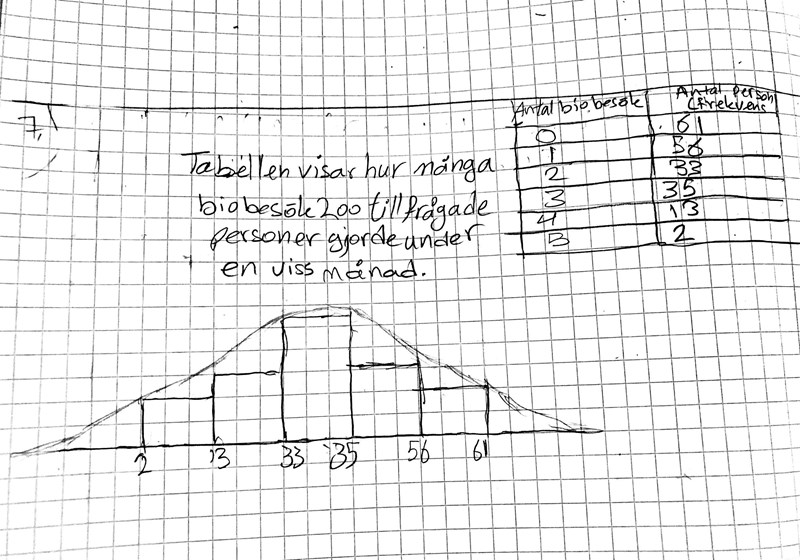 7.
Antal biobesök | Antal person (frekvens
0 | 61
1 | 56
2 | 33
3 | 35
4 | 13
5 | 2
Tabellen visar hur många
biobesök 200 tillfrågade
personer gjorde under
en viss månad.
2 13 33 35 56 61